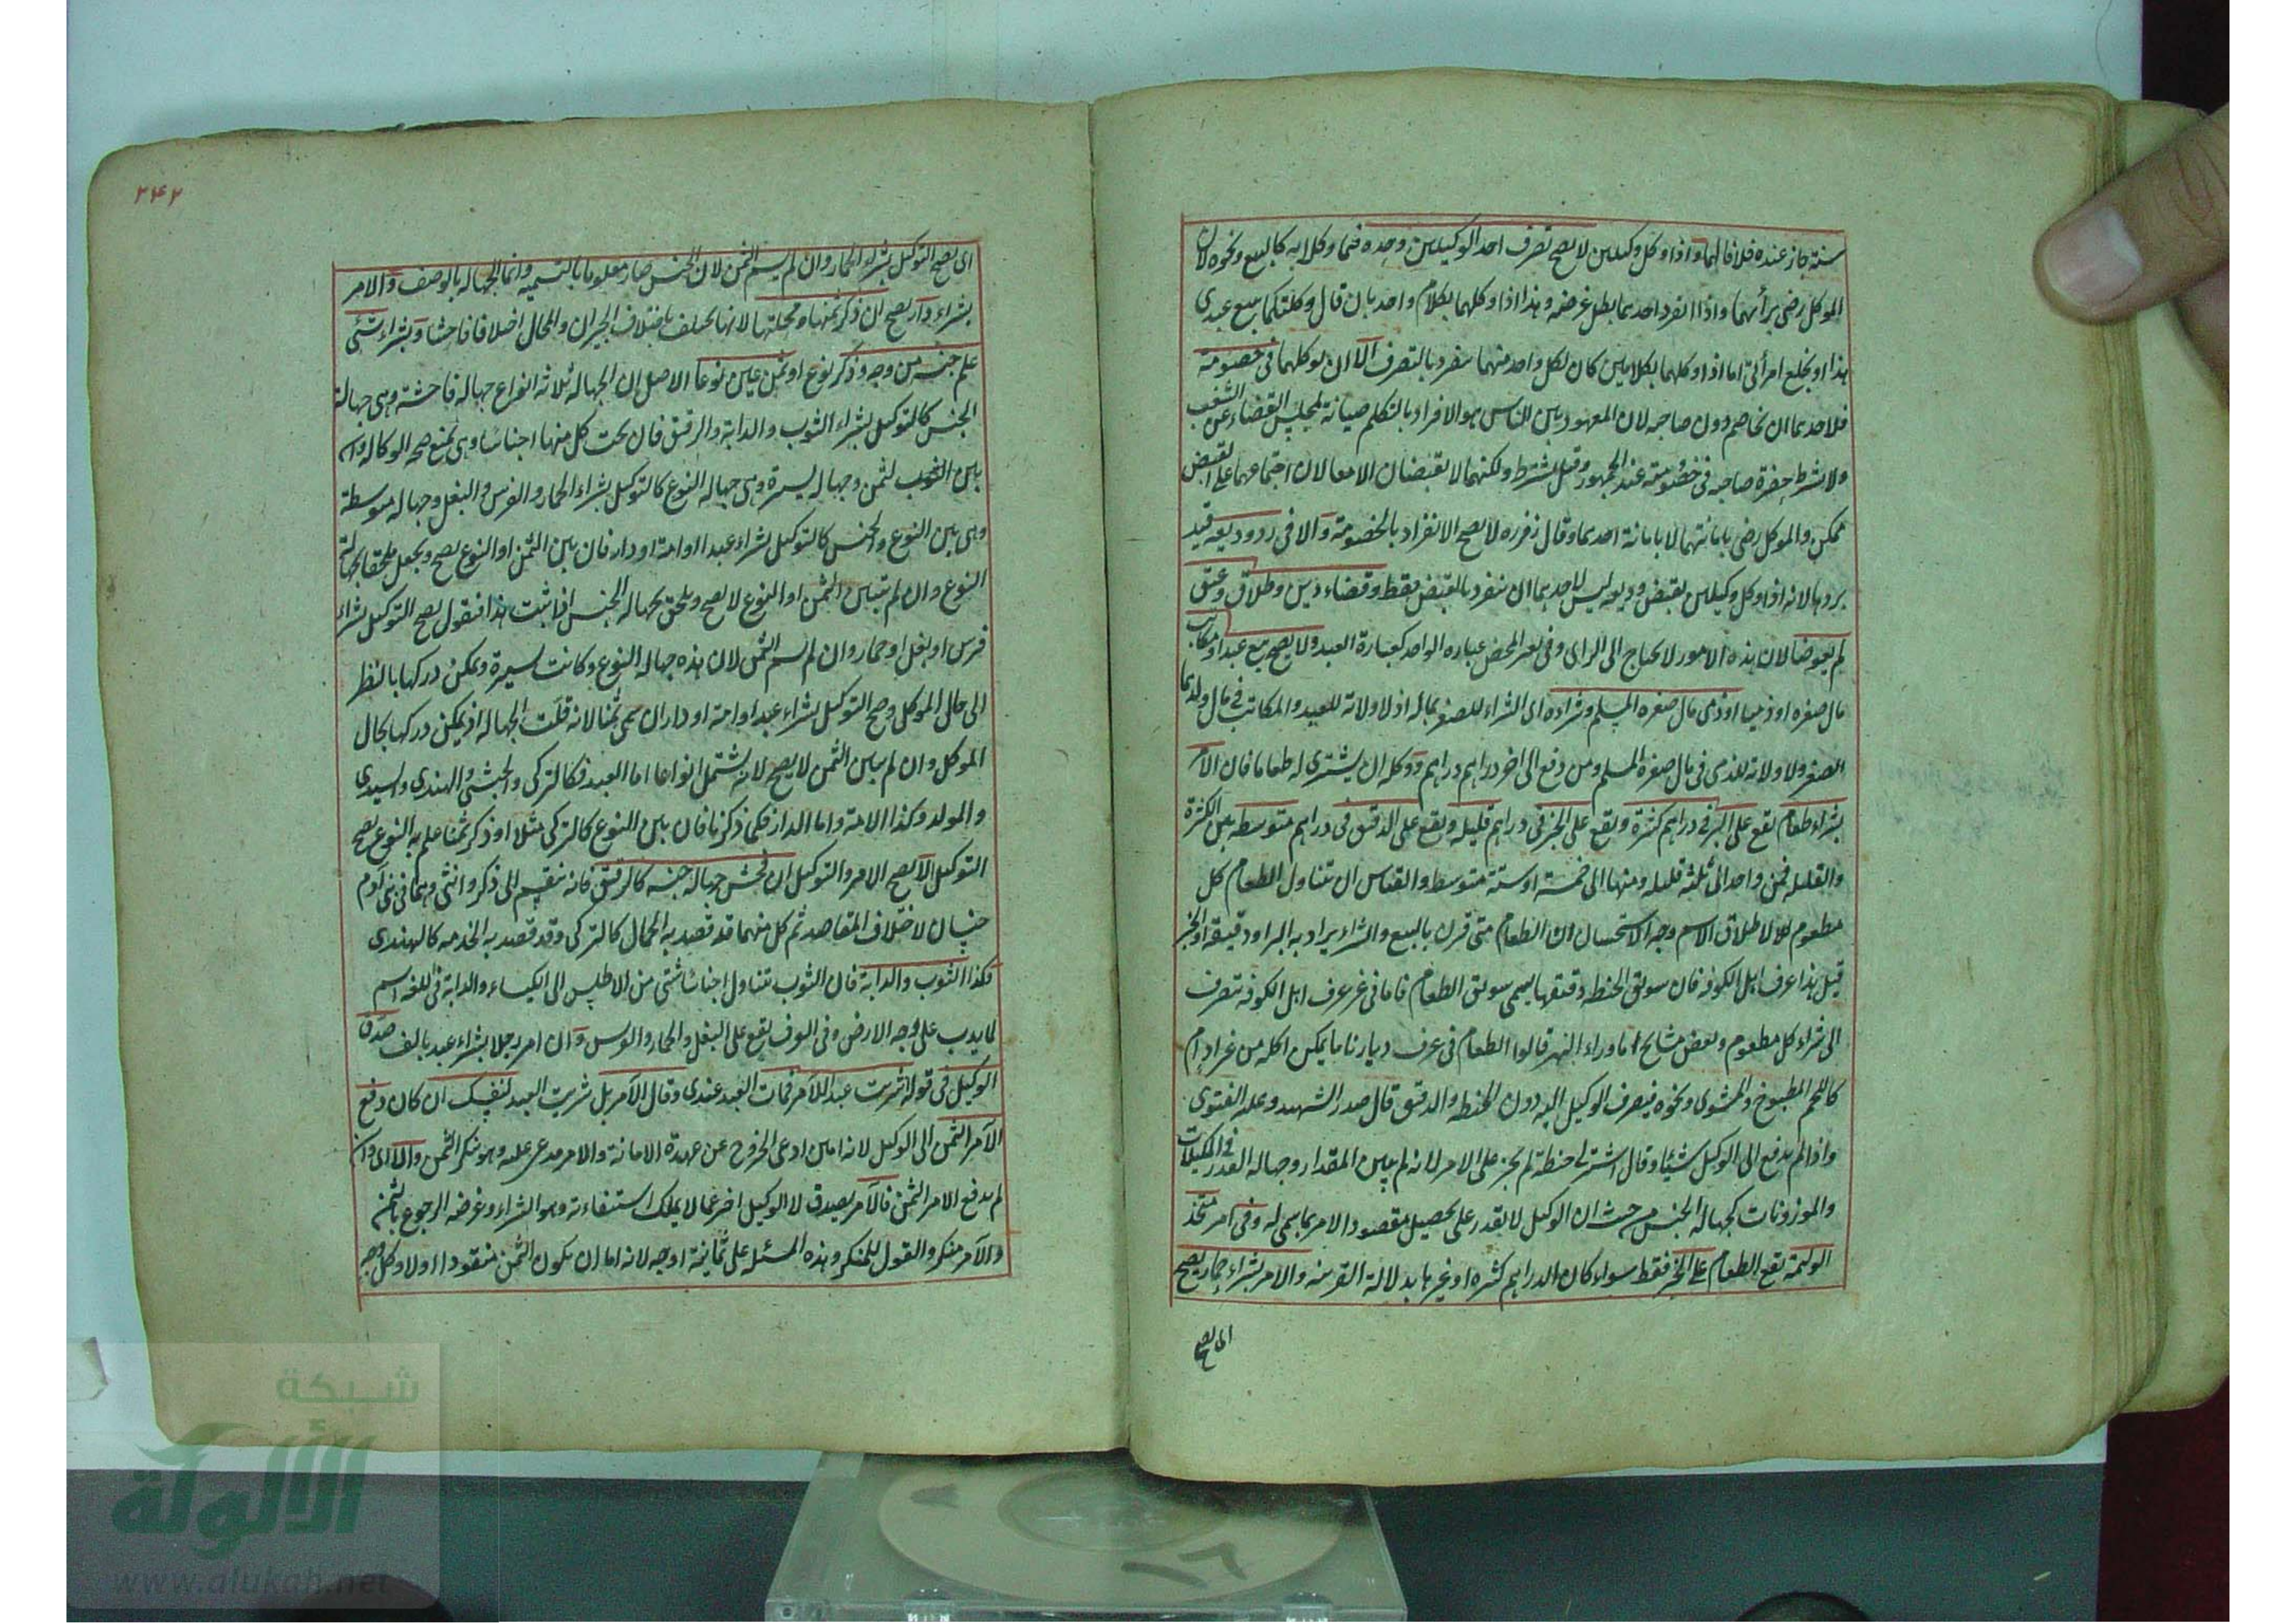 سنة جاز عنده خلافا لهما واذا وكل وكيلين لا يصح تصرف احد الوكيلين وحده فيما وكلا به كالبيع ونحوه لان
الموكل رضي برأيهما واذا انفرد احدهما بطل غرضه وهذا اذا وكلهما بكلام واحد بان قال وكلتكما ببيع عبدي
هذا او بخلع امرأتي اما اذا وكلهما بكلامين كان لكل واحد منهما ينفرد بالتصرف الا ان يوكلهما في خصومة
فلاحدهما ان يخاصم دون صاحبه لان المعهود بين الناس هو الافراد بالتكلم صيانة لمجلس القضاء عن الشغب
ولا يشترط حضرة صاحبه في خصومته عند الجمهور وقيل يشترط ولكنهما لا يقبضان الا معا لان اجتماعهما على القبض
ممكن والموكل رضي بامانتهما لا بامانة احدهما وقال زفر ره لا يصح الانفراد بالخصومة والا في رد وديعة قيد
بردها لانه اذا وكل وكيلين بقبض وديعة ليس لاحدهما ان ينفرد بالقبض فقط وقضاء دين وطلاق وعتق
لم يعوضا لان هذه الامور لا يحتاج الى الراي وفي التعبير المحض عبارة الواحد كعبارة العبد ولا يصح بيع عبد او مكاتب
مال صغره او ذميا او ذمي مال صغره المسلم وشراءه اي الشراء للصغير بماله اذ لا ولاية للعبد والمكاتب في مال ولدهما
الصغير ولا ولاية للذمي في مال صغره المسلم ومن دفع الى اخر دراهم دراهم ووكله ان يشتري له طعاما فان الامر
بشراء طعام يقع على البر في دراهم كثيرة ويقع على الخبز في دراهم قليلة ويقع على الدقيق في دراهم متوسطة بين الكثرة
والقليلة فمن واحد الى ثلثة قليلة ومنها الى خمسة او ستة متوسط والقياس ان يتناول الطعام كل
مطعوم لاطلاق الاسم وجه الاستحسان ان الطعام متى قرن بالبيع والشراء يراد به البر او دقيقه او الخبز
قيل هذا عرف اهل الكوفة فان سوق الحنطة ودقيقها يسمى سوق الطعام فاما في غير عرف اهل الكوفة يتصرف
الى شراء كل مطعوم وبعض مشايخ ما وراء النهر قالوا الطعام في عرف ديارنا ما يمكن اكله من غير ادام
كاللحم المطبوخ والمشوي ونحوه فينصرف الوكيل اليه دون الحنطة والدقيق قال صدر الشهيد وعليه الفتوى
واذا لم يدفع الى الوكيل شيئا وقال اشتر لي حنطة لم يجز على الامر لانه لم يبين المقدار وجهالة القدر في المكيلات
والموزونات كجهالة الجنس من حيث ان الوكيل لا يقدر على تحصيل مقصود الامر بما سمى له وفي امر متخذ
الوليمة يقع الطعام على الخبز فقط سواء كان الدراهم كثيرة او غيرها بدلالة القرينة والامر بشراء حمار يصح
اي يصح
٢٤٢
اي يصح التوكيل بشراء الحمار وان لم يسم الثمن لان الجنس صار معلوما بالتسمية وانما الجهالة بالوصف والامر
بشراء دار يصح ان ذكر ثمنها ومحلتها لانها تختلف باختلاف الجيران والمحال اختلافا فاحشا وبشراء شيئ
علم جنسه من وجه وذكر نوع او ثمن عين نوعا الاصل ان الجهالة ثلاثة انواع جهالة فاحشة وهي جهالة
الجنس كالتوكيل بشراء الثوب والدابة والرقيق فان تحت كل منها اجناسا وهي تمنع صحة الوكالة وان
بين الثوب الثمن وجهالة يسيرة وهي جهالة النوع كالتوكيل بشراء الحمار والفرس والبغل وجهالة متوسطة
وهي بين النوع والجنس كالتوكيل بشراء عبد او امة او دار فان بين الثمن او النوع يصح ويجعل ملحقا بجهالة
النوع وان لم يبين الثمن او النوع لا يصح ويلحق بجهالة الجنس اذا ثبت هذا فنقول يصح التوكيل بشراء
فرس او بغل او حمار وان لم يسم الثمن لان هذه جهالة النوع وكانت يسيرة ويمكن دركها بالنظر
الى حال الموكل وصح التوكيل بشراء عبد او امة او دار ان سمى ثمنا لانه قلت الجهالة اذ يمكن دركها بحال
الموكل وان لم يبين الثمن لا يصح لانه يشتمل انواعا اما العبد فكالتركي والحبشي والهندي والسندي
والمولد وكذا الامة واما الدار فكما ذكرنا فان بين النوع كالتركي مثلا او ذكر ثمنا علم به النوع يصح
التوكيل الا يصح الامر والتوكيل ان فحش جهالة جنسه كالرقيق فانه ينقسم الى ذكر وانثى وهما في بني آدم
جنسان لاختلاف المقاصد ثم كل منهما قد قصد به الجمال كالتركي وقد قصد به الخدمة كالهندي
فكذا الثوب والدابة فان الثوب يتناول اجناسا شتى من الاطلس الى الكساء والدابة في اللغة اسم
لما يدب على وجه الارض وفي العرف يقع على البغل والحمار والفرس وان امر رجلا بشراء عبد بالف صدق
الوكيل في قوله اشتريت عبدا للآمر فمات العبد عندي وقال الآمر بل شريت العبد لنفسك ان كان دفع
الآمر الثمن الى الوكيل لانه امين ادعى الخروج عن عهدة الامانة والامر مدعي عليه وهو ينكر الثمن والا اي وان
لم يدفع الامر الثمن فالآمر يصدق لا الوكيل اخبر عما لا يملك استنفاءته وهو الشراء وغرضه الرجوع بالثمن
والآمر منكر والقول للمنكر وهذه المسئلة على ثمانية اوجه لانه اما ان يكون الثمن منقودا او لا وكل وجه
شبكة
الألوكة
www.alukah.net